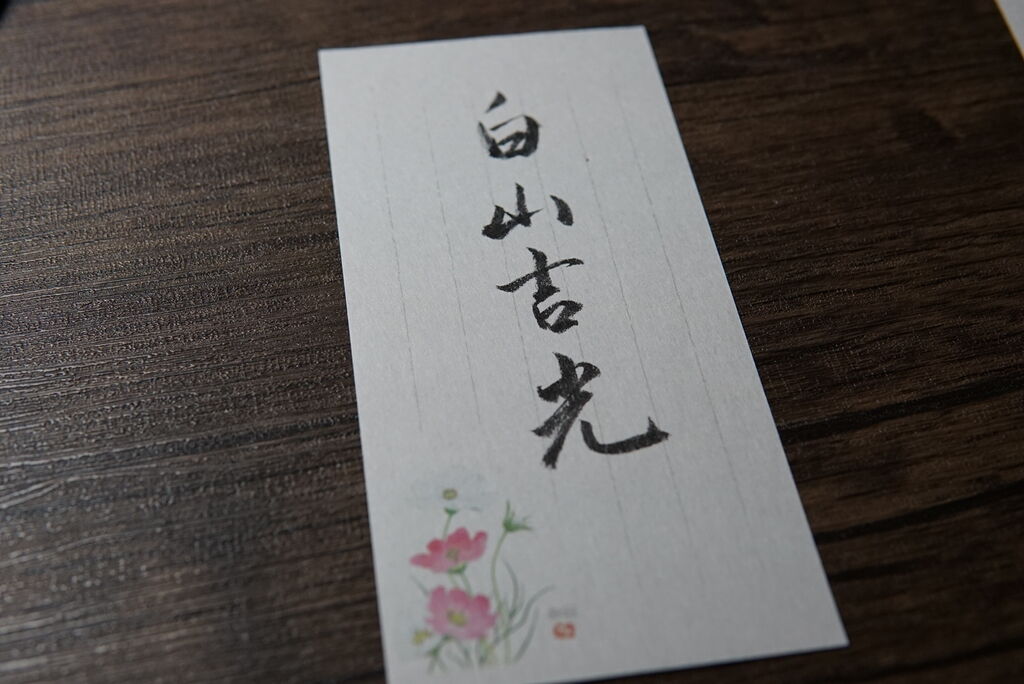 白山吉光